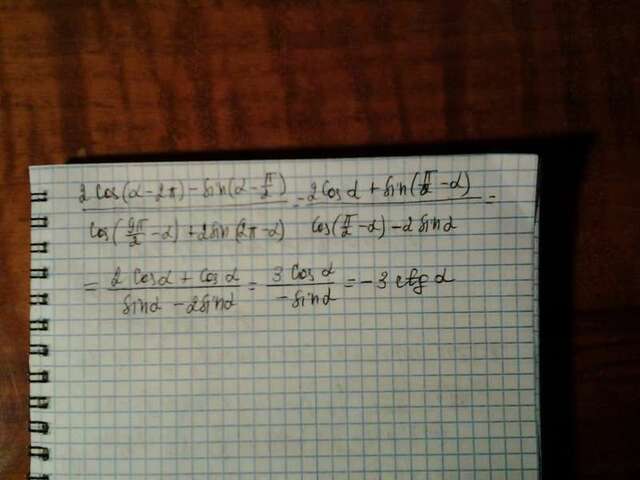 (2cos(α-2π)-sin(α-π/2))/(cos(9π/2-α)+2sin(2π-α)) = (2cosα+sin(π/2-α))/(cos(π/2-α)-2sinα) =
= (2cosα+cosα)/(sinα-2sinα) = (3cosα)/(-sinα) = -3ctgα